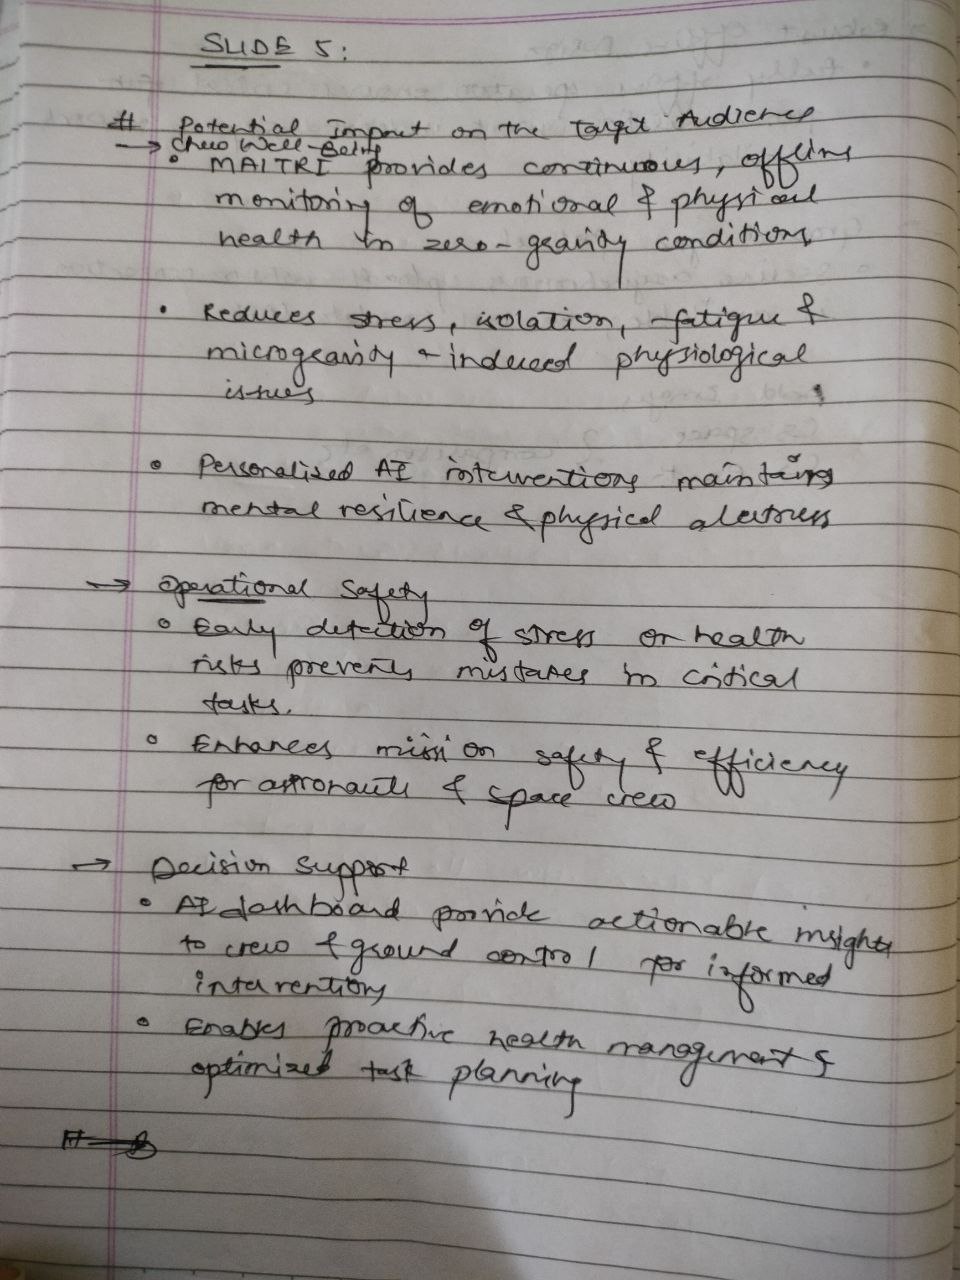 SLIDE 5:
# Potential Impact on the Target Audience
→ Crew Well-Being
• MAITRI provides continuous, offline
monitoring of emotional & physical
health in zero-gravity conditions
• Reduces stress, isolation, fatigue &
microgravity-induced physiological
issues
• Personalized AI interventions maintains
mental resilience & physical alertness
→ Operational Safety
• Early detection of stress or health
risks prevents mistakes in critical
tasks.
• Enhances mission safety & efficiency
for astronauts & space crew
→ Decision Support
• AI dashboard provide actionable insights
to crew & ground control for informed
interventions
• Enables proactive health management &
optimized task planning